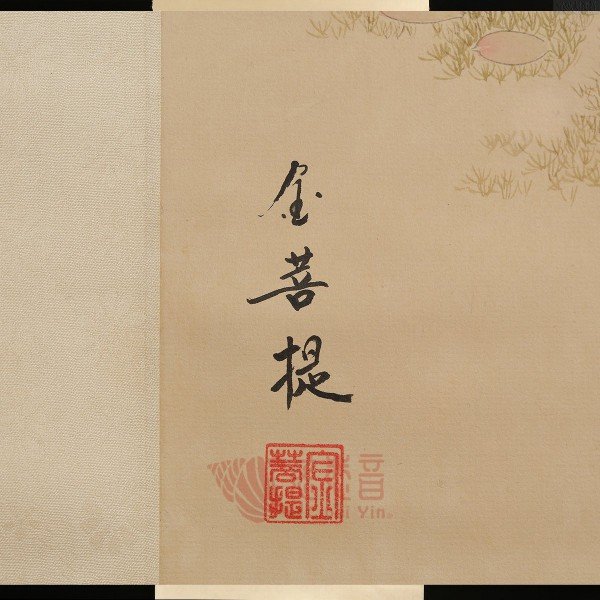 金菩提
菩提
音
Yin